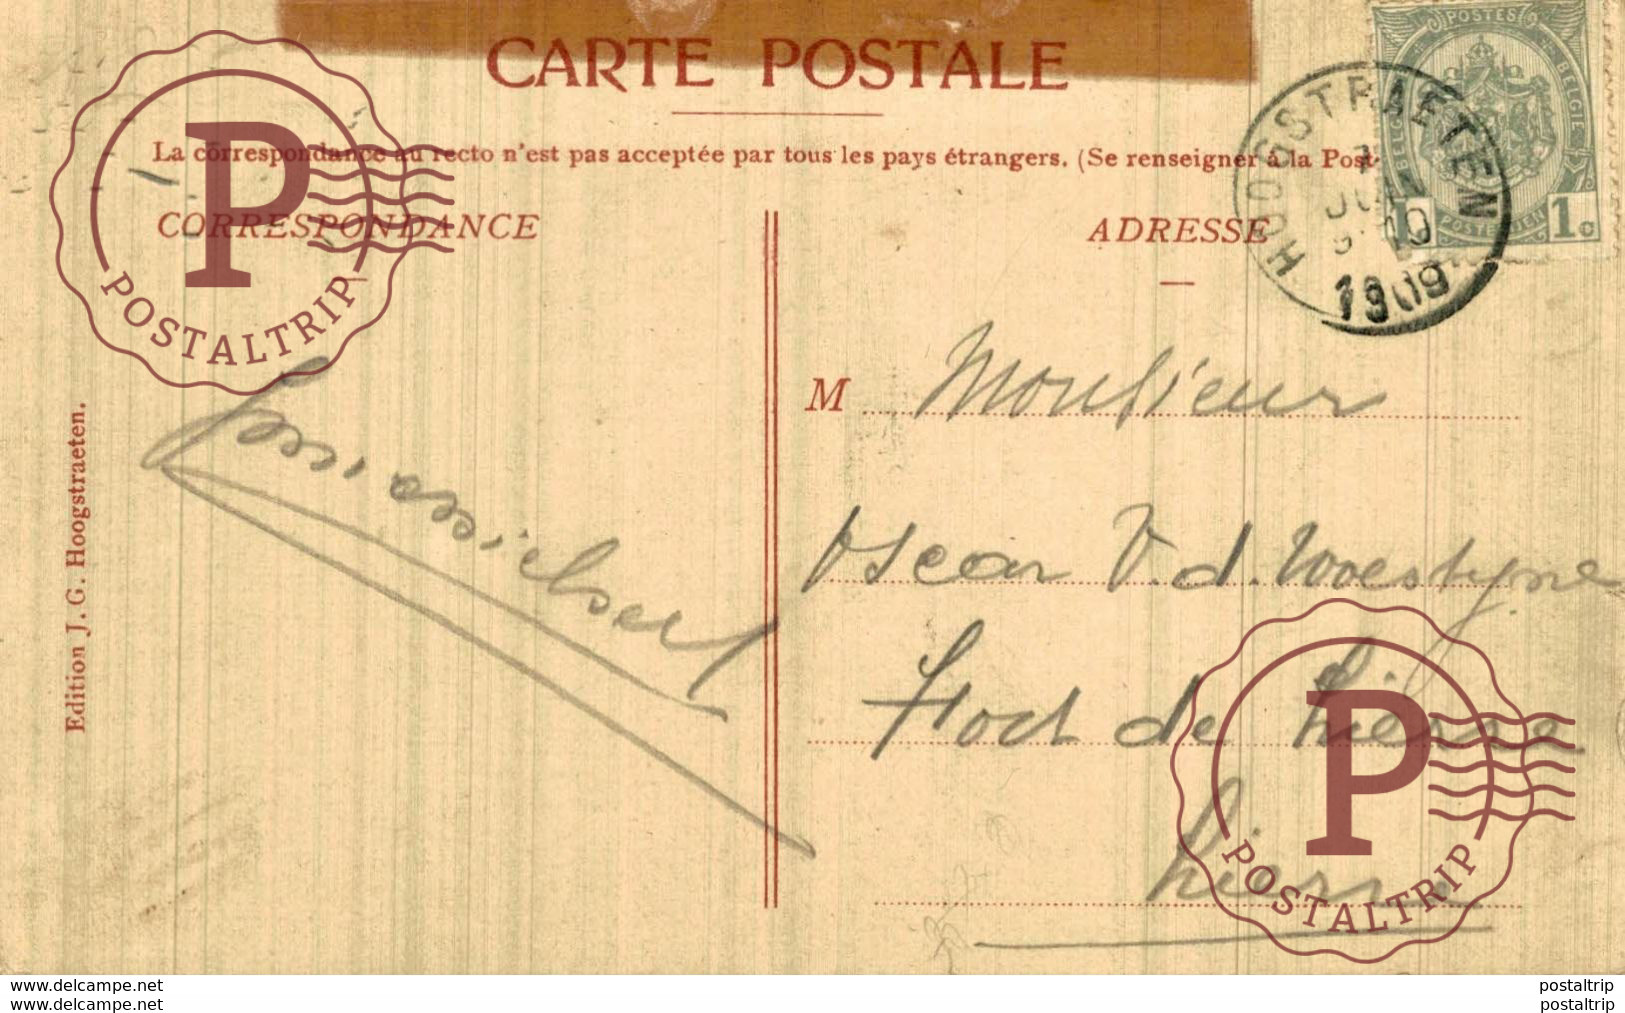 CARTE POSTALE
La correspondance au recto n'est pas acceptée par tous les pays étrangers. (Se renseigner à la Post
CORRESPONDANCE
ADRESSE
HOOGSTRAETEN
1909
POSTES
BELGIE
BELGIQUE
POSTERIJEN
1c
M Monsieur
Oscar V. d. Woestyne
de Lierre
Lierre
Edition J. G. Hoogstraeten.
P
POSTALTRIP
P
POSTALTRIP
www.delcampe.net
postaltrip
www.delcampe.net
postaltrip